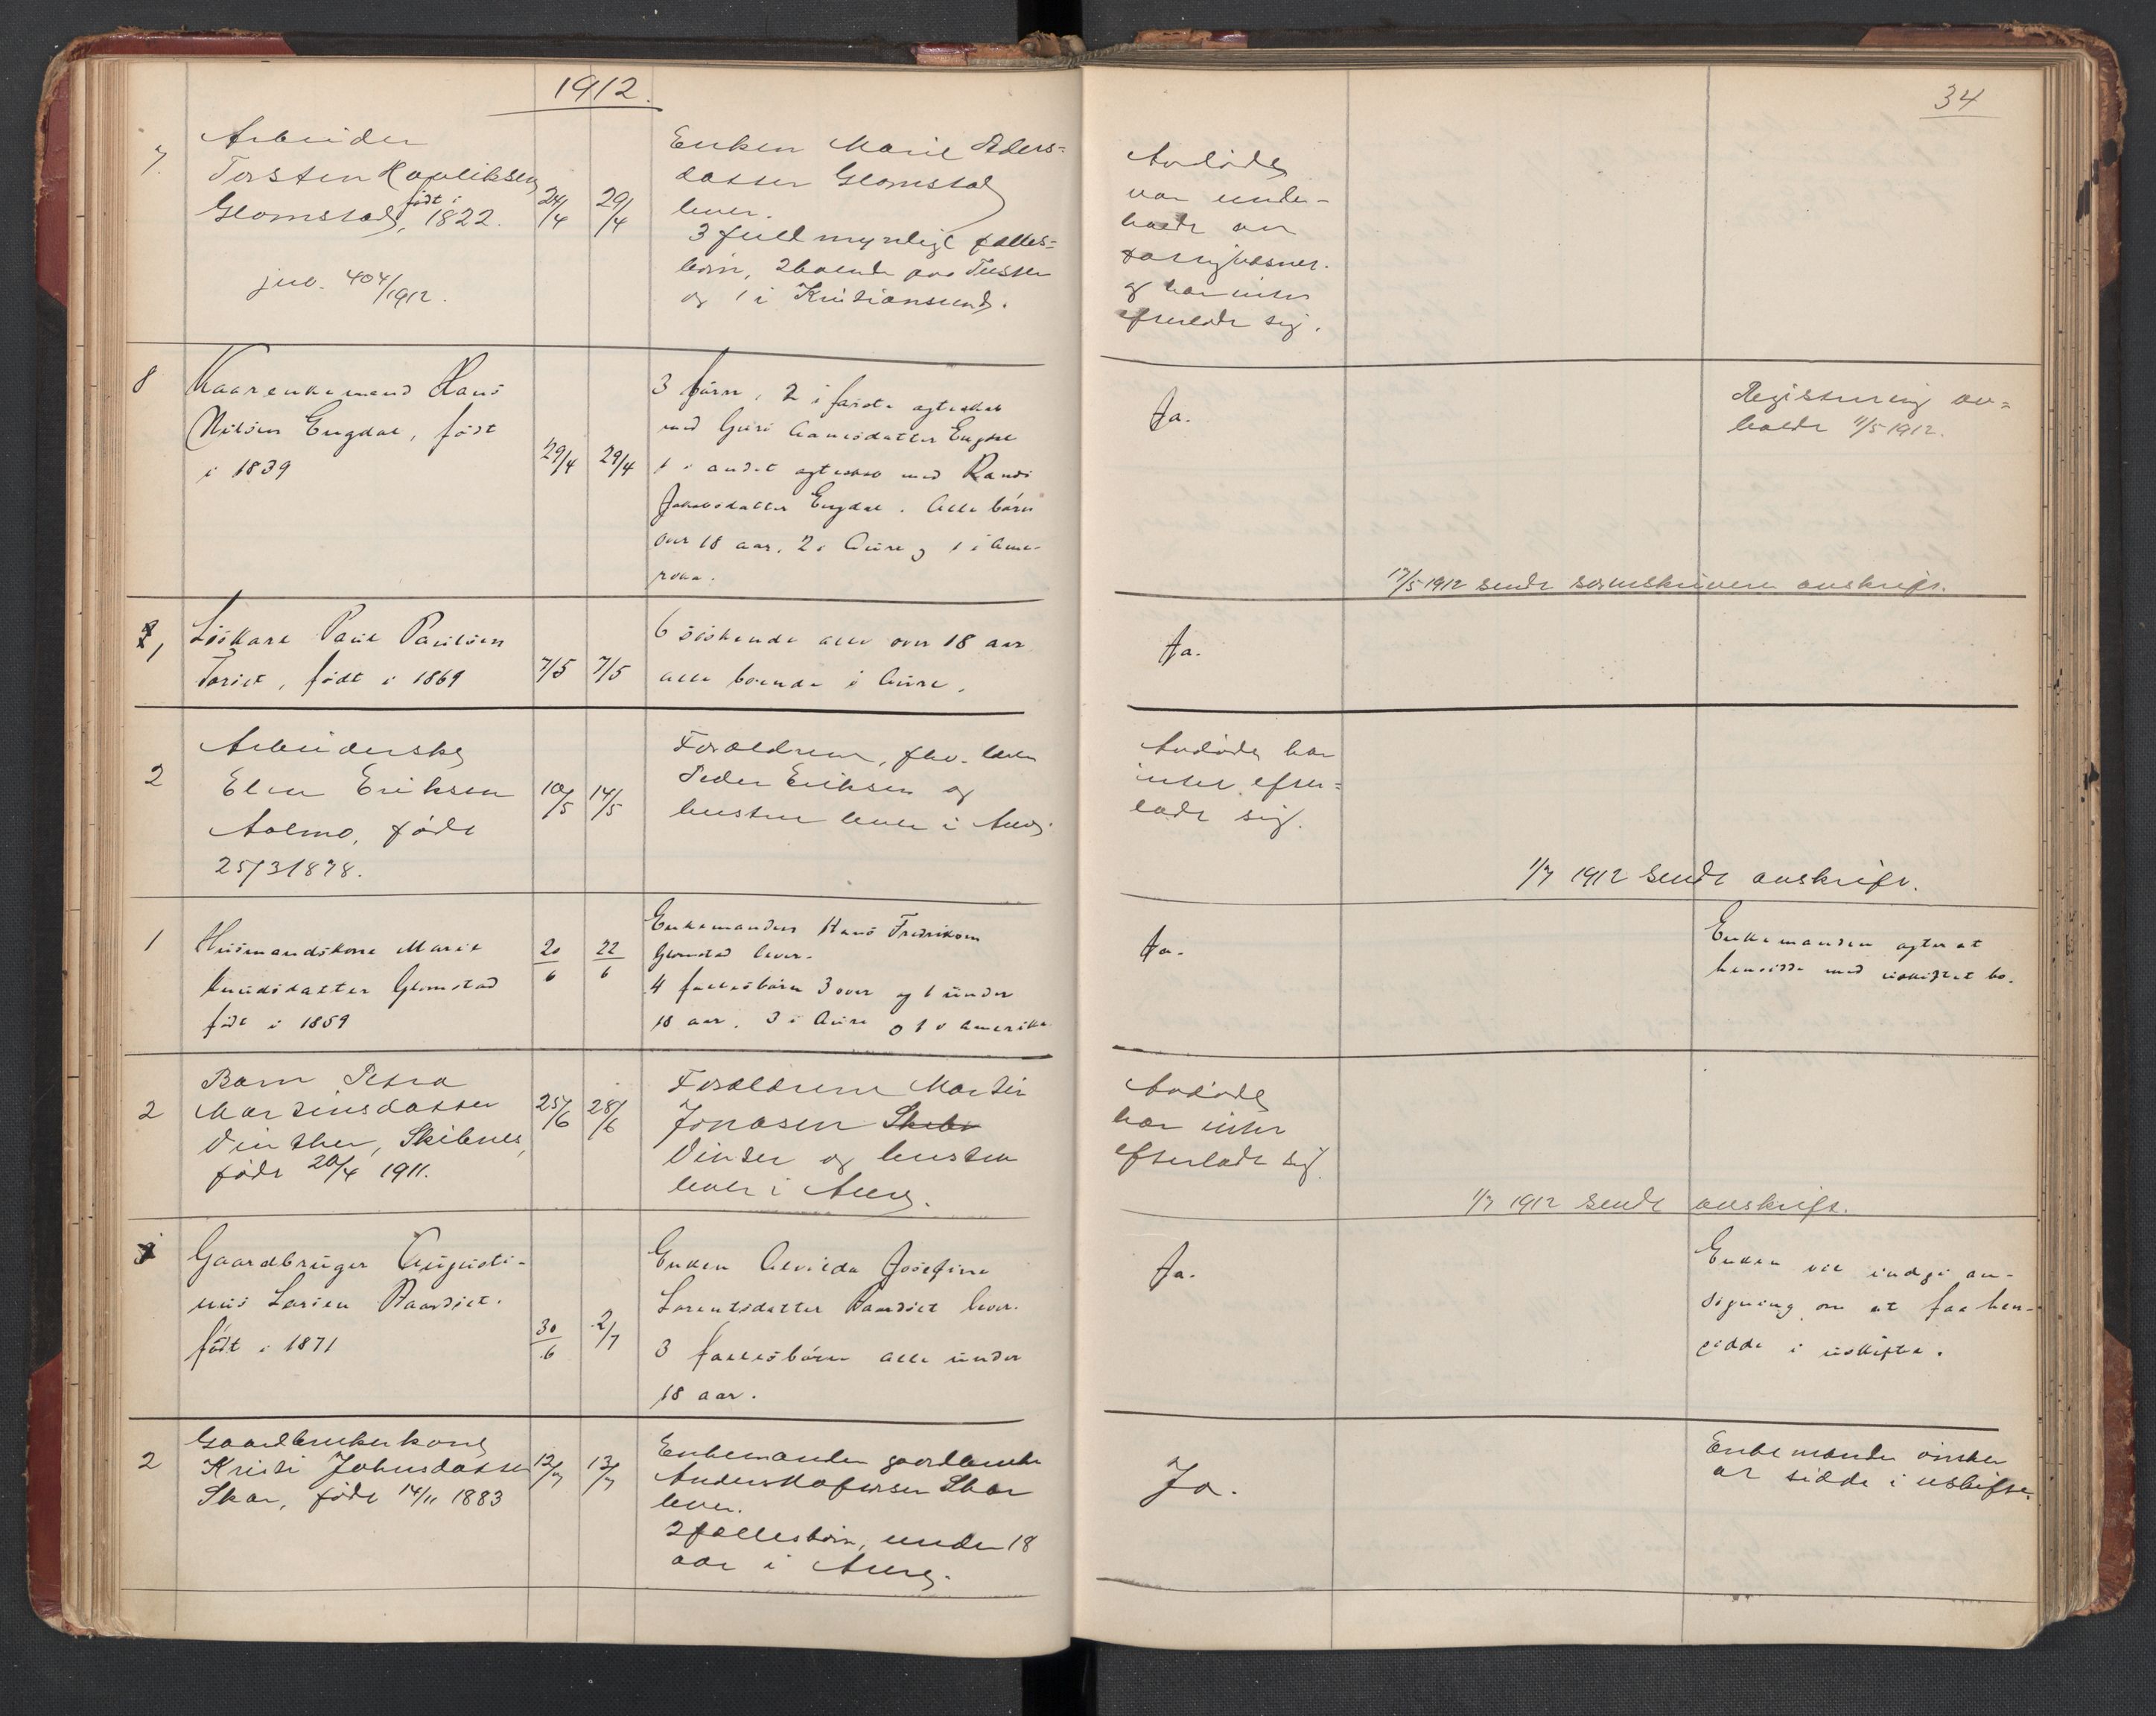 1912.
34
7.
Arbeider
Torsten
Glomstad, født i 1822.
jno. 404/1912.
24/4
29/4
Enken Marie Peders=
datter Glomstad
lever.
3 fullmyndige fælles=
børn, 2 boende paa Tusteren
og 1 i Kristiansund.
Avdøde
var under=
holdt av
fattigvæsnet
og har intet
efterladt sig.
8
Kaarenkemand Hans
Nilsen Engdal, født
i 1839
29/4
29/4
3 børn, 2 i første egteskab
med Guri Hansdatter Engdal
1 i andet egteskab med Randi
Jakobsdatter Engdal. Alle børn
over 18 aar, 2 i Aure og 1 i Ame-
rika.
Ja.
Registrering av=
holdt 11/5 1912.
17/5 1912 sendt sorenskriveren avskrift.
1
Løskarl Paul Paulsen
født i 1869
7/5
7/5
6 søskende alle over 18 aar
alle boende i Aure.
Ja.
2
Arbeiderske
Elen Eriksen
Aalmo, født
25/3 1878.
10/5
14/5
Forældrene, fhv. lærer
Peder Eriksen og
hustru lever i Aure.
Avdøde har
intet efter=
ladt sig.
1/7 1912 sendt avskrift.
1
Husmandskone Marit
Knudsdatter Glomstad
født i 1859
20/6
22/6
Enkemanden Hans Fredriksen
Glomstad lever.
4 fællesbørn 3 over og 1 under
18 aar. 3 i Aure og 1 i Amerika
Ja.
Enkemanden agter at
hensidde med uskiftet bo.
2
Barn Petra
Martinsdatter
Vinther, Skibnes,
født 20/4 1911.
25/6
28/6
Forældrene Martin
Jonasen Skibn
Vinter og hustru
lever i Aure.
Avdøde
har intet
efterladt sig.
1/7 1912 sendt avskrift.
1
Gaardbruger Augusti-
nus Larsen
født i 1871
30/6
2/7
Enken Alvilda Josefine
Lorentsdatter lever.
3 fællesbørn alle under
18 aar.
Ja.
Enken vil indgi an-
søgning om at faa hen-
sidde i uskifte.
2
Gaardbrukerkone
Kristi Johnsdatter
Skar, født 14/11 1883
12/7
13/7
Enkemanden gaardbruker
Anders Skar
lever.
2 fællesbørn, under 18
aar i Aure.
Ja.
Enkemanden ønsker
at sidde i uskifte.